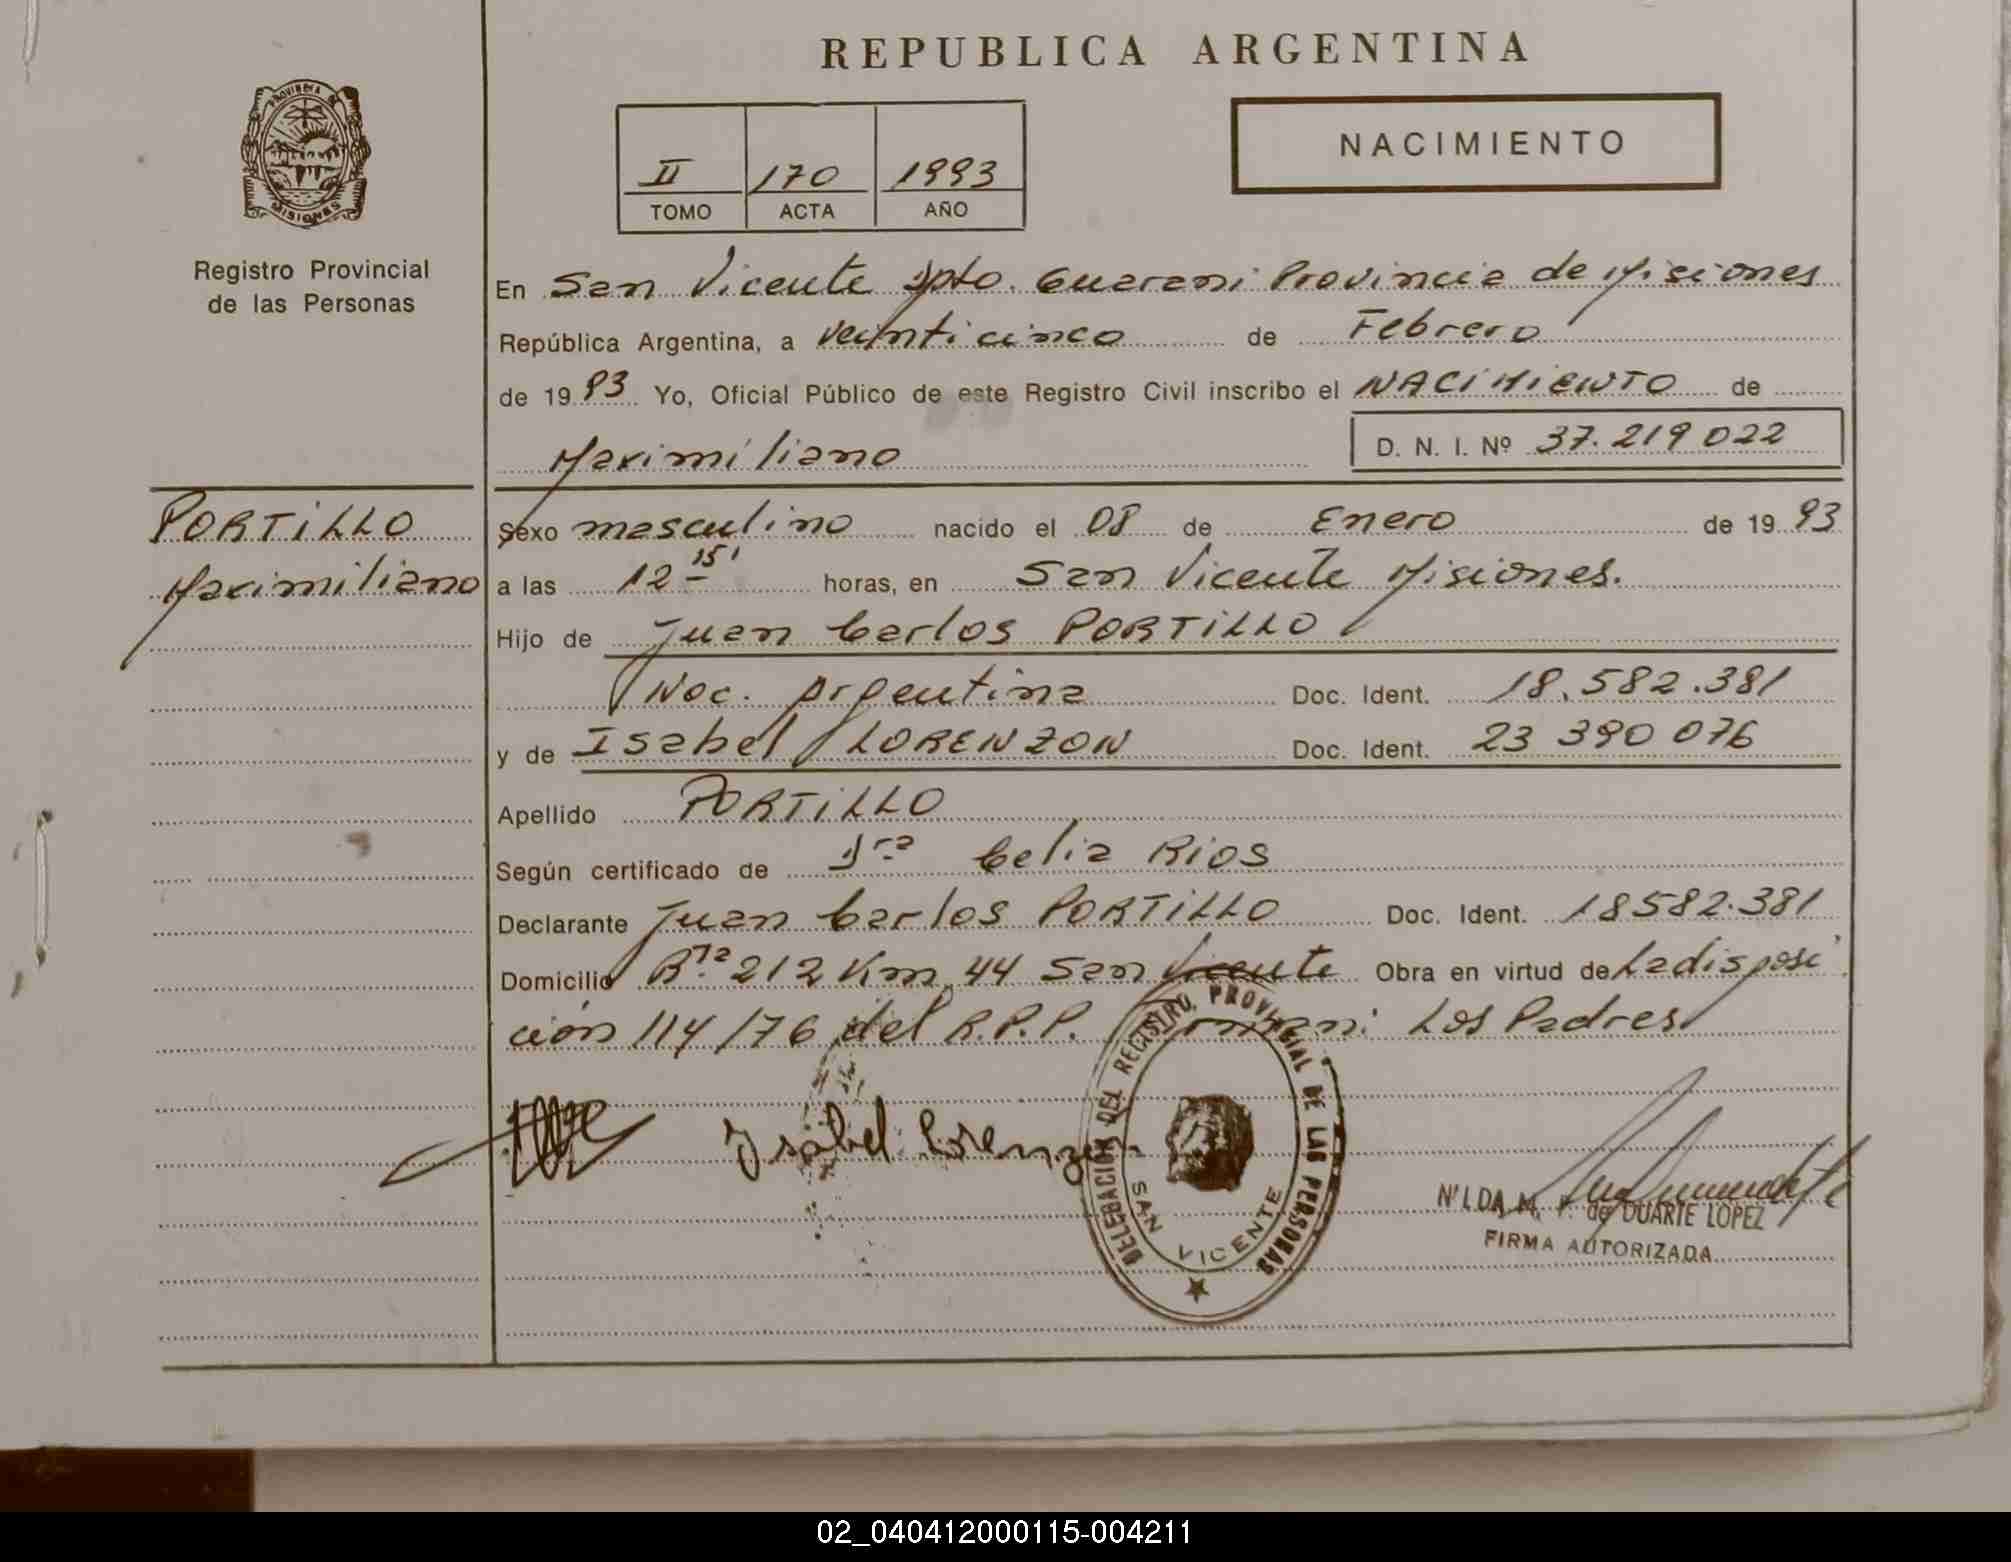 REPUBLICA ARGENTINA
PROVINCIA DE
MISIONES
Registro Provincial
de las Personas
II 170 1993
TOMO ACTA AÑO
NACIMIENTO
En San Vicente Dpto. Guarani Provincia de Misiones
República Argentina, a veinticinco de Febrero
de 1993 Yo, Oficial Público de este Registro Civil inscribo el NACIMIENTO de
Maximiliano D. N. I. Nº 37.219 022
PORTILLO
Maximiliano
Sexo masculino nacido el 08 de Enero de 1993
a las 12 15' horas, en San Vicente Misiones.
Hijo de Juan Carlos PORTILLO
Nac. Argentina Doc. Ident. 18.582.381
y de Isabel LORENZON Doc. Ident. 23 390 076
Apellido PORTILLO
Según certificado de Dra Celia RIOS
Declarante Juan Carlos PORTILLO Doc. Ident. 18582.381
Domicilio Rta. 212 Km. 44 San Vicente Obra en virtud de La disposi
ción 114/76 del R.P.P. Firman: Los Padres
Isabel Lorenzon
DELEGACION DEL REGISTRO PROVINCIAL DE LAS PERSONAS
SAN VICENTE
NILDA M. F. de DUARTE LOPEZ
FIRMA AUTORIZADA
02_040412000115-004211